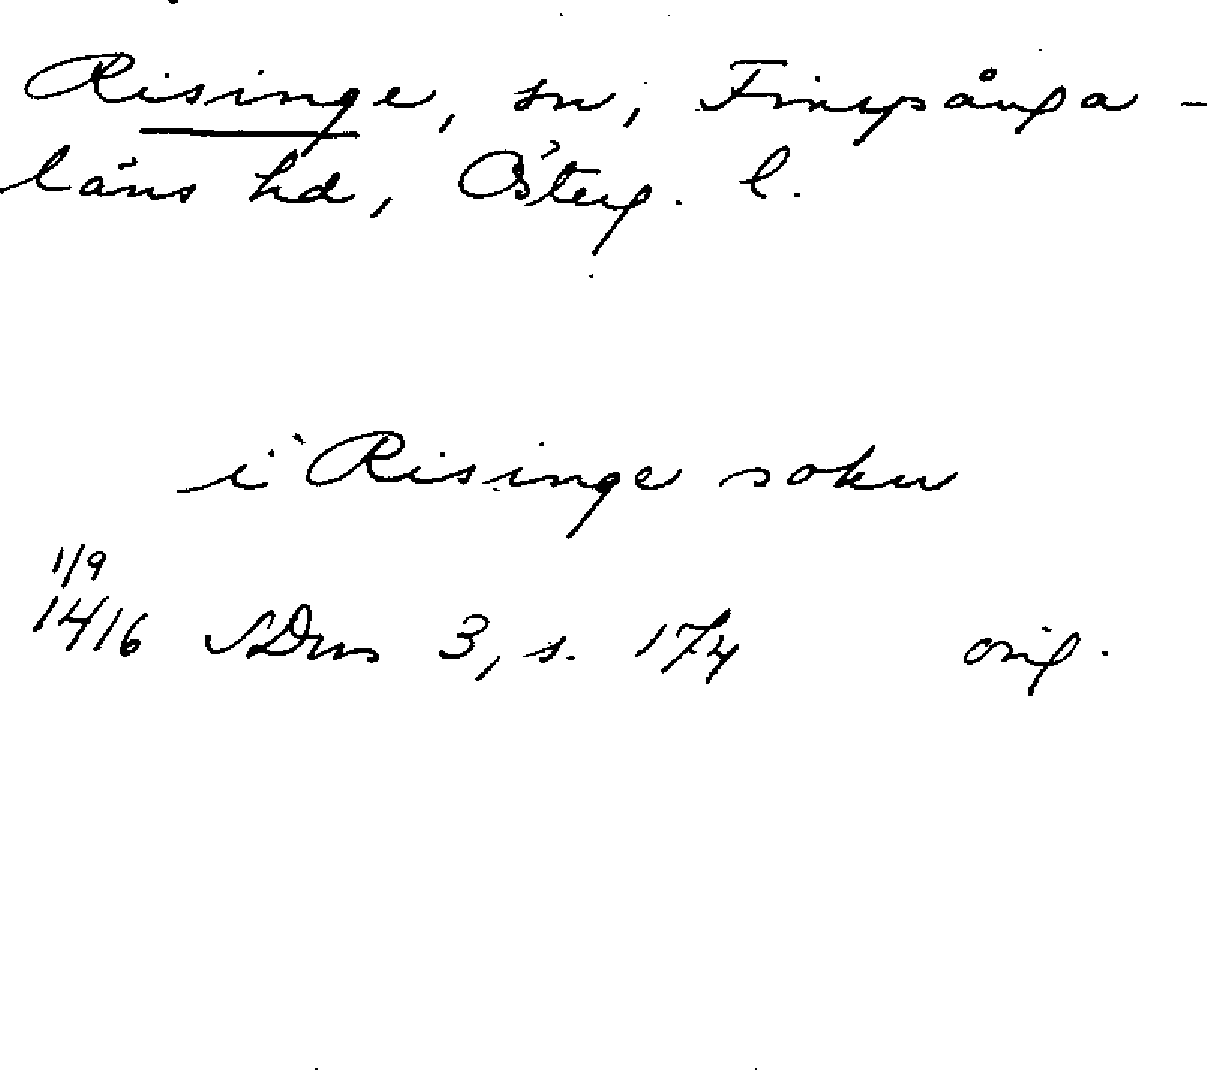 Risinge, sn, Finspånga -
läns hd, Österg. l.
i Risinge sokn
1/9
1416 SDns 3, s. 174 orig.